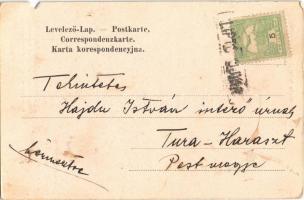 Levelező-Lap. — Postkarte.
Correspondenzkarte.
Karta korespondencyjna.
5
Tekintetes
Hajdu István intéző úrnak
Tura-Haraszt
Pest megye